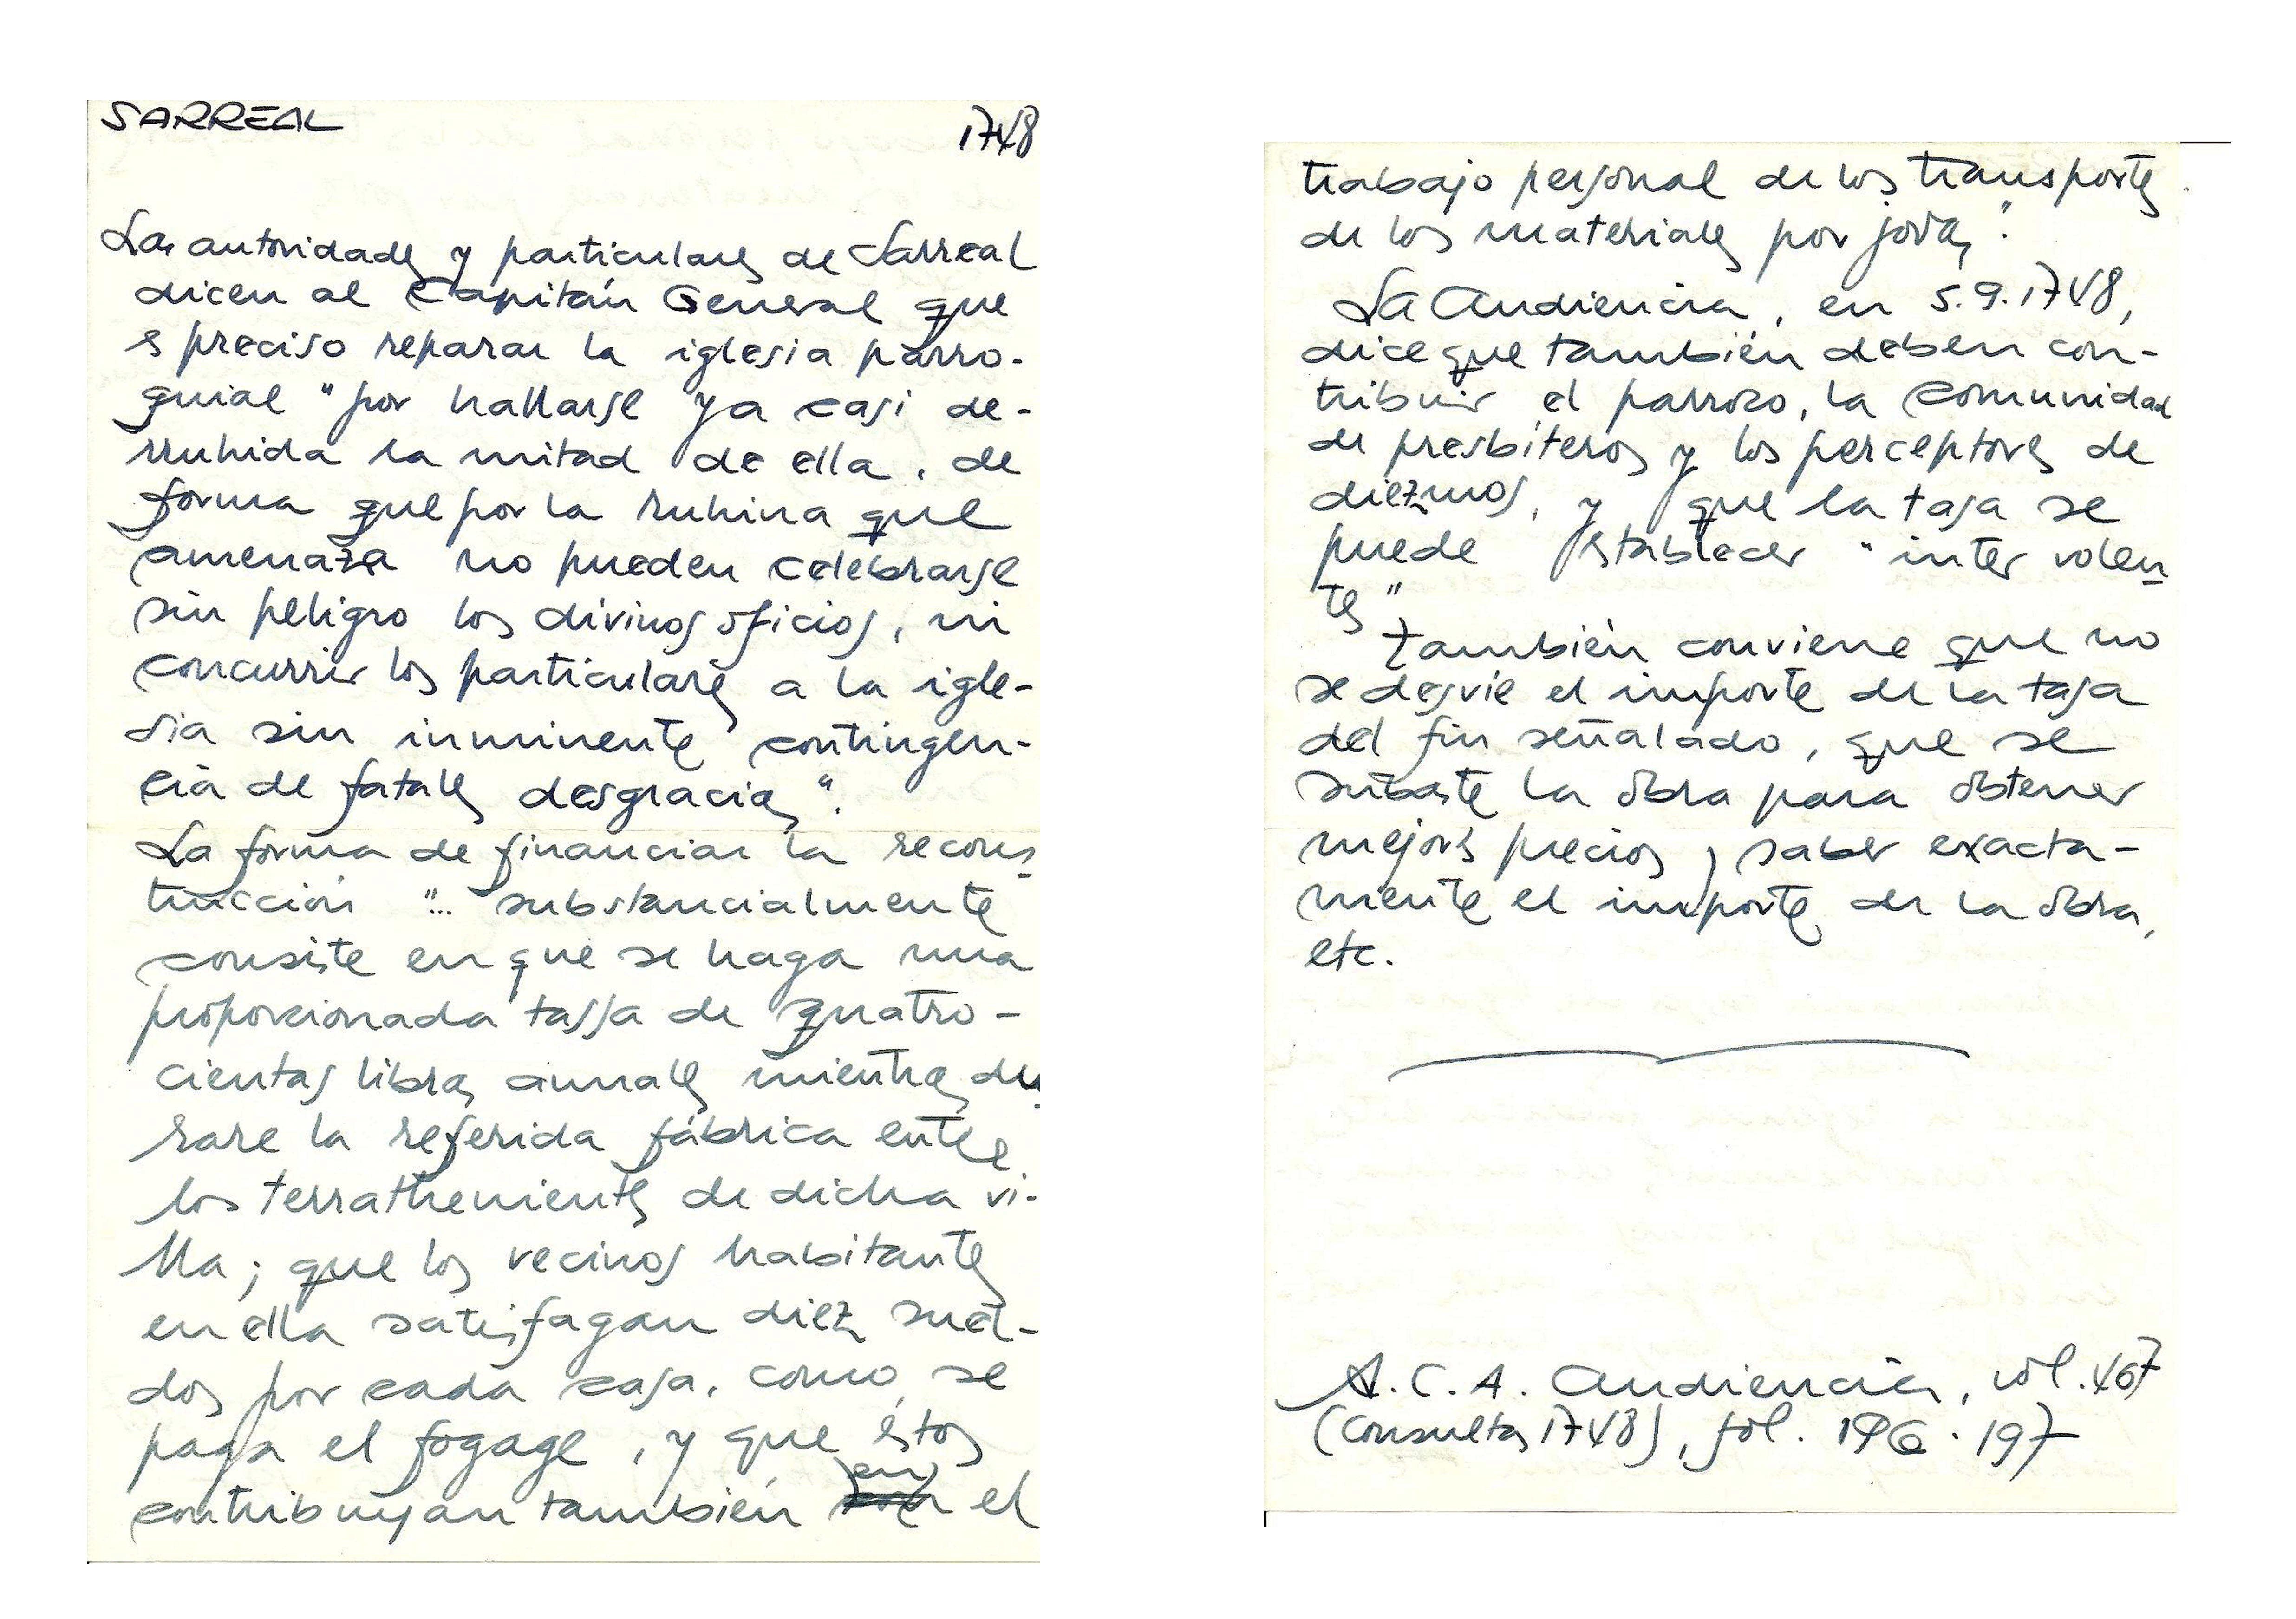 SARREAL 1748
Las autoridades y particulares de Sarreal
dicen al Capitán General que
es preciso reparar la iglesia parro-
quial "por hallarse ya casi de-
rruhida la mitad de ella, de
forma que por la ruhina que
amenaza no pueden celebrarse
sin peligro los divinos oficios, ni
concurrir los particulares a la igle-
sia sin inminente contingen-
cia de fatales desgracias".
La forma de financiar la recons-
trucción "... substancialmente
consiste en que se haga una
proporcionada tassa de quatro-
cientas libras annales mientras du-
rare la referida fábrica entre
los terrathenientes de dicha vi-
lla; que los vecinos habitantes
en ella satisfagan diez suel-
dos por cada casa, como se
paga el fogage, y que éstos
contribuyan también en el
trabajo personal de los transportes
de los materiales por jovas".
La Audiencia, en 5.9.1748,
dice que también deben con-
tribuir el párroco, la comunidad
de presbíteros y los perceptores de
diezmos, y que la tasa se
puede establecer "inter volen-
tes"
También conviene que no
se desvíe el importe de la tasa
del fin señalado, que se
subaste la obra para obtener
mejores precios y saber exacta-
mente el importe de la obra,
etc.
A.C.A. Audiencia, vol. 467
(Consultas 1748), fol. 196-197